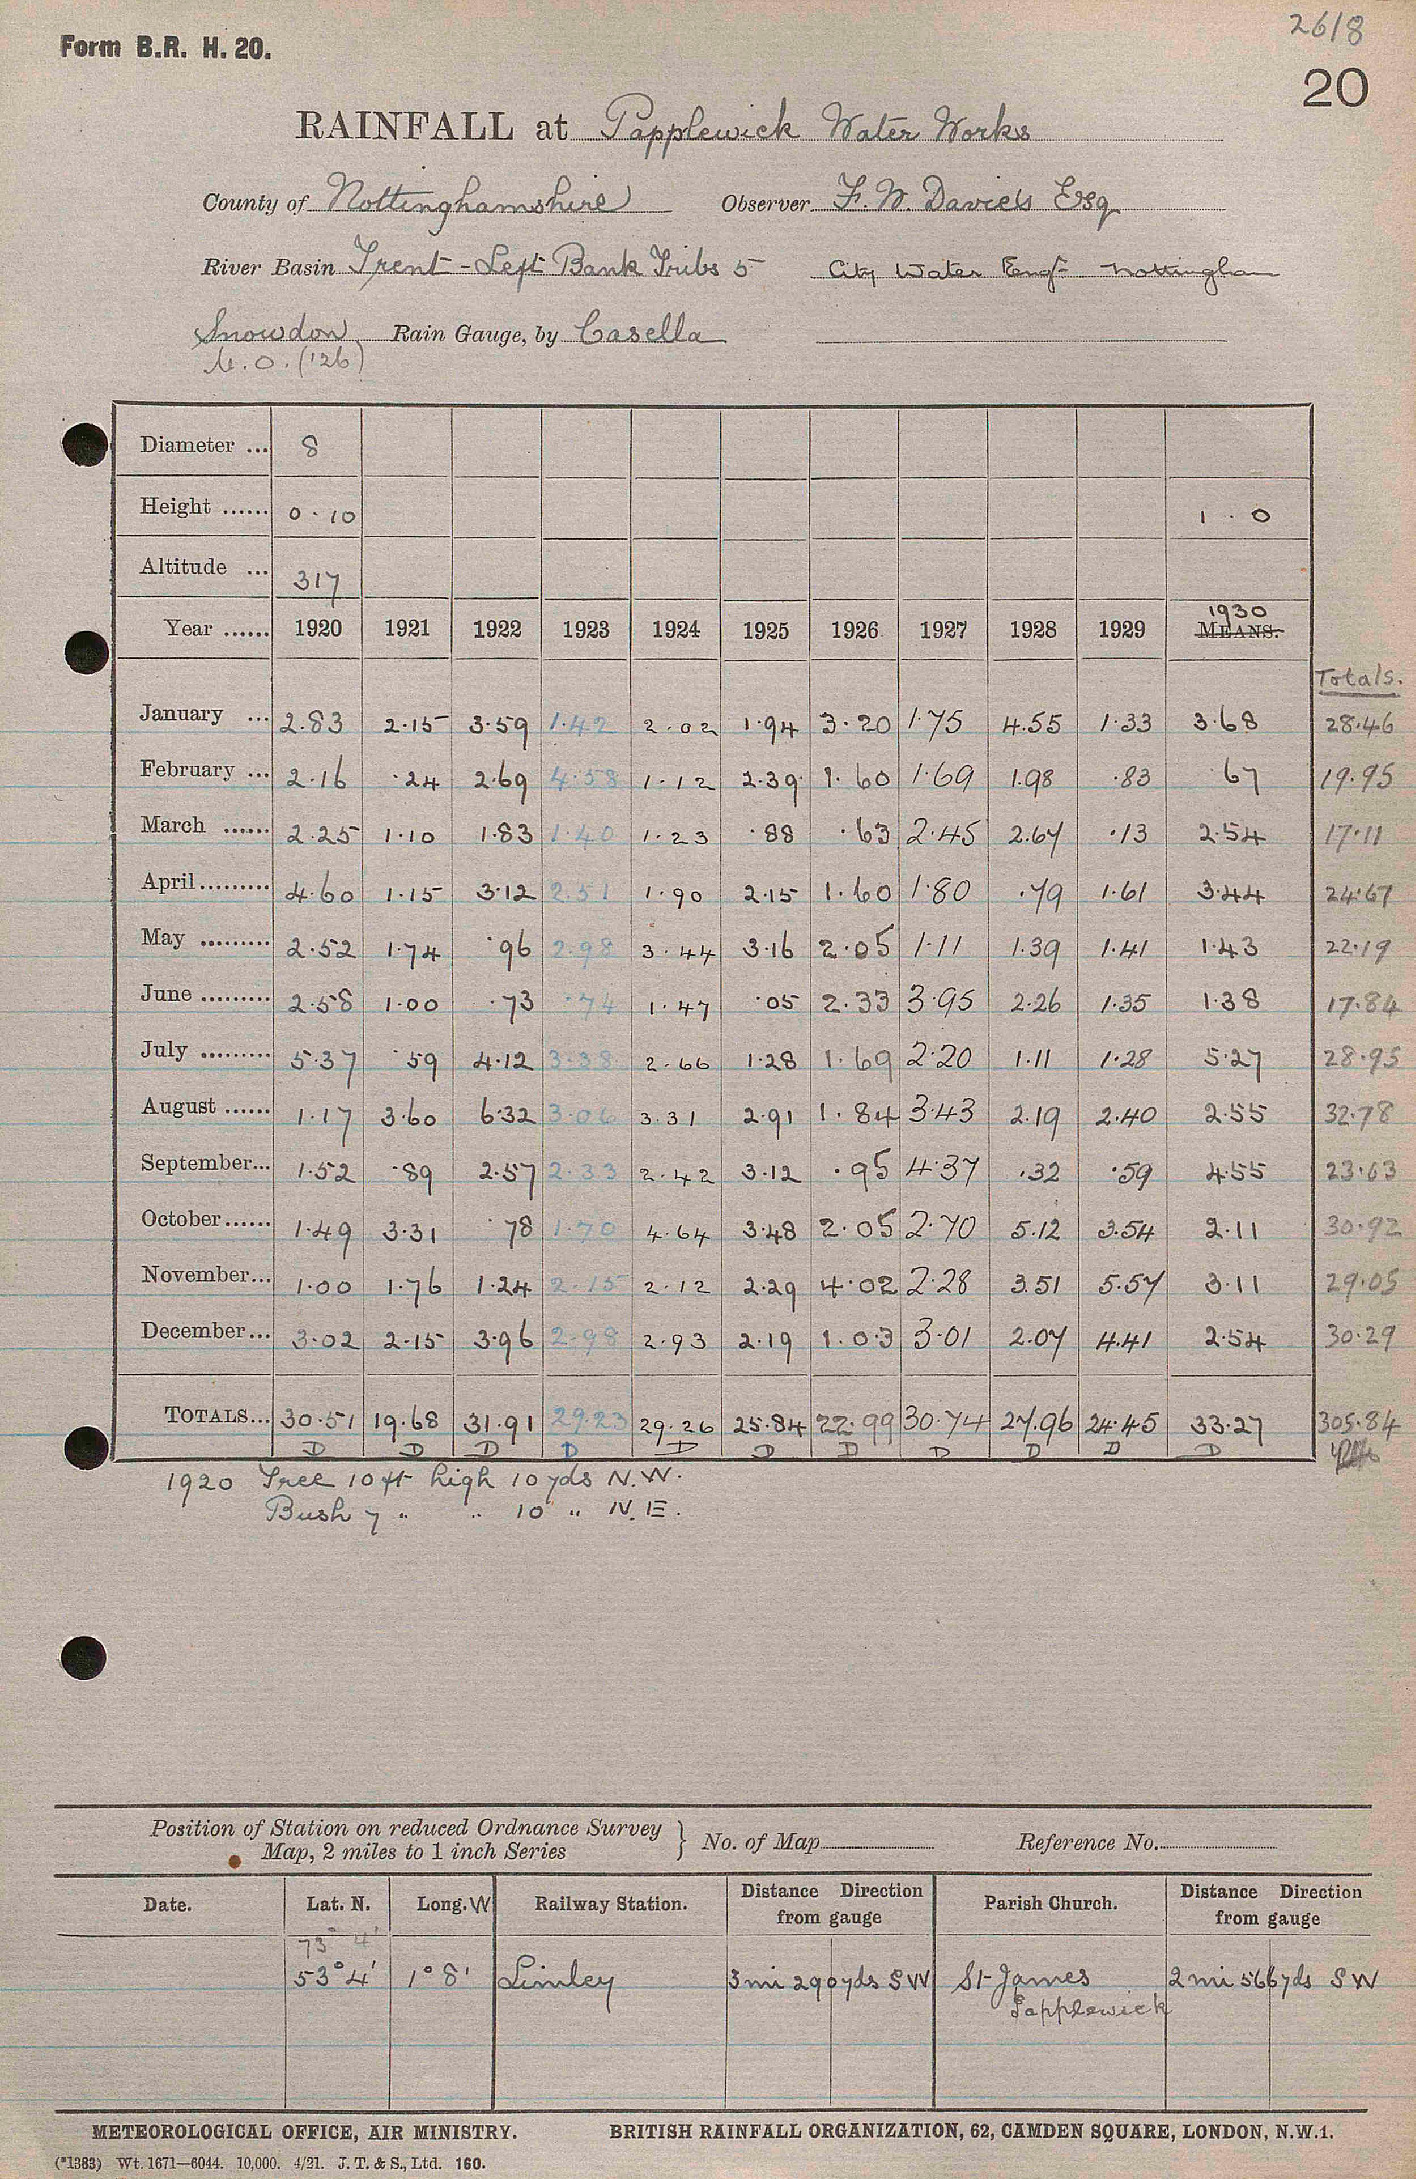 2618
Form B.R. H. 20.
20
RAINFALL at Papplewick Water Works
County of Nottinghamshire Observer F. W. Davies Esq
River Basin Trent - Left Bank Tribs 5 City Water Engr Nottingham
Snowdon Rain Gauge, by Casella
M.O. (126)
Diameter ... 8
Height ...... 0·10 1·0
Altitude ... 317
1930
Year ...... 1920 1921 1922 1923 1924 1925 1926 1927 1928 1929 MEANS.
Totals.
January ... 2.83 2·15 3·59 1·42 2·02 1·94 3·20 1·75 4.55 1·33 3·68 28·46
February ... 2·16 ·24 2·69 4·58 1·12 2·39 1·60 1·69 1.98 ·83 ·67 19·95
March ...... 2·25 1·10 1·83 1·40 1·23 ·88 ·63 2·45 2.67 ·13 2·54 17·11
April......... 4·60 1·15 3·12 2·51 1·90 2·15 1·60 1·80 ·79 1·61 3·44 24·67
May ......... 2·52 1·74 ·96 2·98 3·44 3·16 2·05 1·11 1·39 1·41 1·43 22·19
June ......... 2·58 1·00 ·73 ·74 1·47 ·05 2·33 3·95 2·26 1·35 1·38 17·84
July ......... 5·37 ·59 4·12 3·38 2·66 1·28 1·69 2·20 1·11 1·28 5·27 28·95
August ...... 1·17 3·60 6·32 3·06 3·31 2·91 1·84 3·43 2·19 2·40 2·55 32·78
September... 1·52 ·89 2·57 2·33 2·42 3·12 ·95 4·37 ·32 ·59 4·55 23·63
October...... 1·49 3·31 ·78 1·70 4·64 3·48 2·05 2·70 5·12 3·54 2·11 30·92
November... 1·00 1·76 1·24 2·15 2·12 2·29 4·02 2·28 3.51 5·57 3·11 29·05
December... 3·02 2·15 3·96 2·98 2·93 2·19 1·03 3·01 2·07 4·41 2·54 30·29
TOTALS... 30·51 19·68 31·91 29·23 29·26 25·84 22·99 30·74 27.96 24·45 33·27 305·84
D D D D D D D D D D D
1920 Tree 10 ft high 10 yds N.W.
Bush 7 " " 10 " N.E.
Position of Station on reduced Ordnance Survey
Map, 2 miles to 1 inch Series } No. of Map Reference No.
Date. Lat. N. Long. W Railway Station. Distance Direction from gauge Parish Church. Distance Direction from gauge
73° 4'
53° 4' 1° 8' Linley 3 mi 290 yds SW St James 2 mi 566 yds SW
Papplewick
METEOROLOGICAL OFFICE, AIR MINISTRY. BRITISH RAINFALL ORGANIZATION, 62, CAMDEN SQUARE, LONDON, N.W.1.
(*1383) Wt. 1671—6044. 10,000. 4/21. J. T. & S., Ltd. 160.